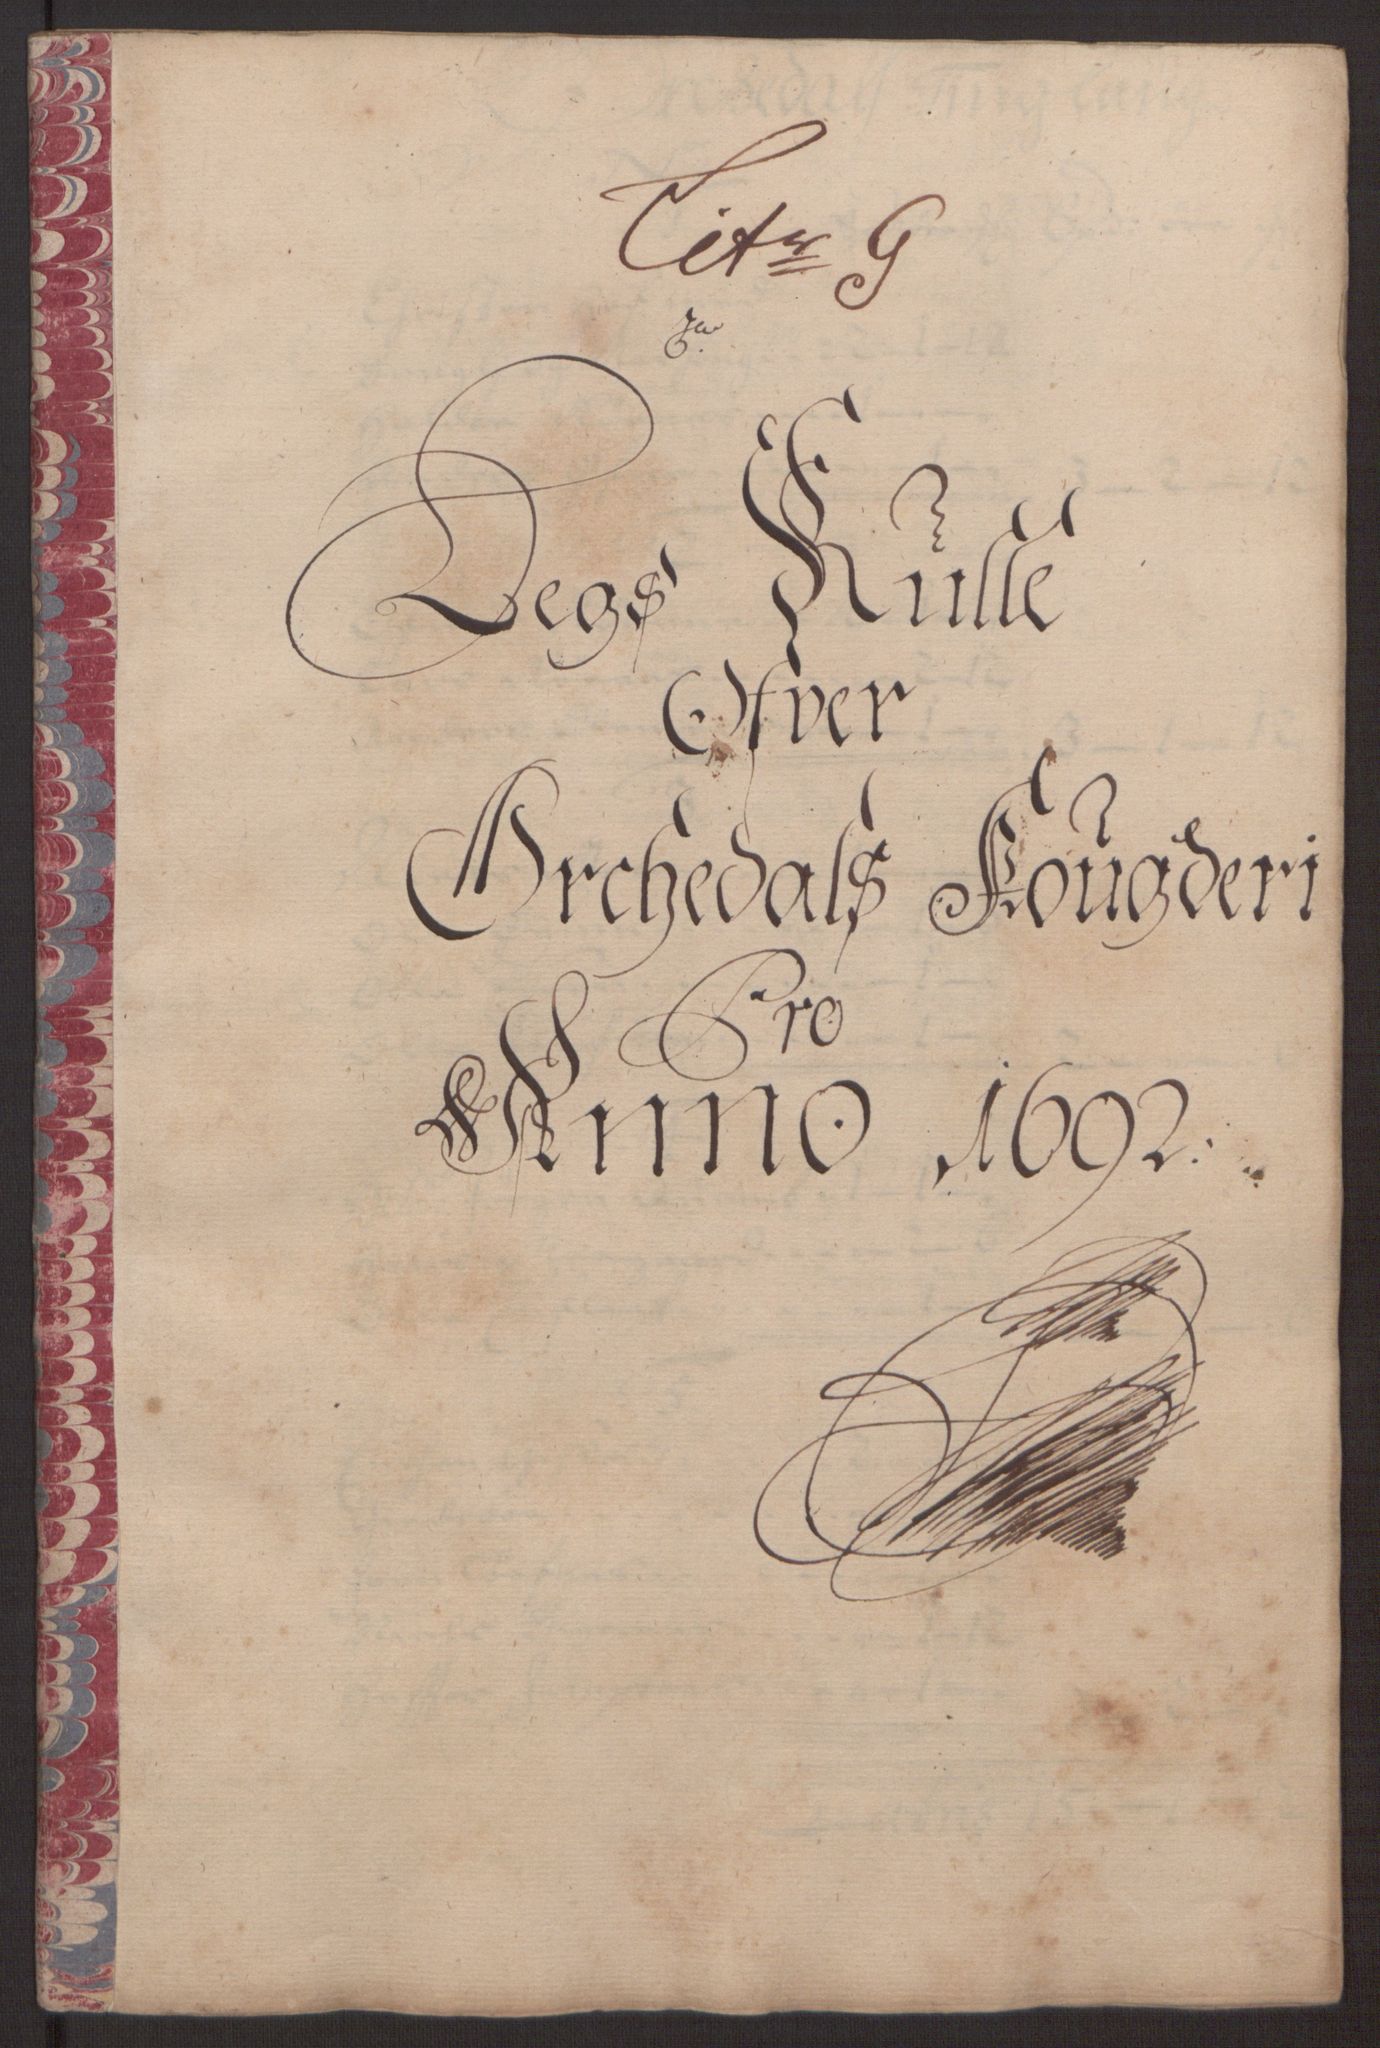 Litr G
Degs Rulle
Ofver
Orchedals Fougderi
Pro
Anno 1692.